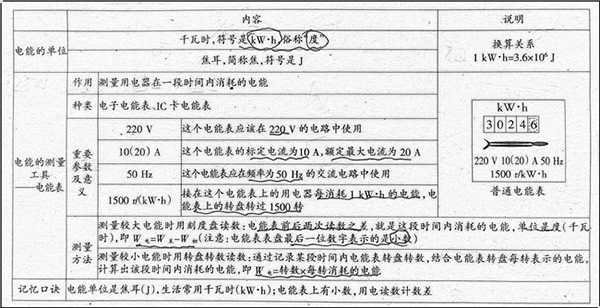 内容
说明
电能的单位
千瓦时,符号是kW·h,俗称"度"
焦耳,简称焦,符号是J
换算关系
1 kW·h=3.6×10⁶ J
电能的测量工具——电能表
作用
测量用电器在一段时间内消耗的电能
种类
电子电能表、IC卡电能表
重要参数及意义
220 V
这个电能表应该在220 V的电路中使用
10(20) A
这个电能表的标定电流为10 A,额定最大电流为20 A
50 Hz
这个电能表应在频率为50 Hz的交流电路中使用
1500 r/(kW·h)
接在这个电能表上的用电器每消耗1 kW·h的电能,电
能表上的转盘转过1500转
kW·h
30246
220 V 10(20) A 50 Hz
1500 r/kW·h
普通电能表
测量方法
测量较大电能时用刻度盘读数:电能表前后两次读数之差,就是这段时间内消耗的电能,单位是度(千瓦
时),即W电=W末-W初(注意:电能表表盘最后一位数字表示的是小数)
测量较小电能时用转盘转数读数:通过记录某段时间内电能表转盘转数,结合电能表转盘每转表示的电能,
计算出该段时间内消耗的电能,即W电=转数×每转消耗的电能
记忆口诀
电能单位是焦耳(J),生活常用千瓦时(kW·h);电能表上有小数,用电读数计数差